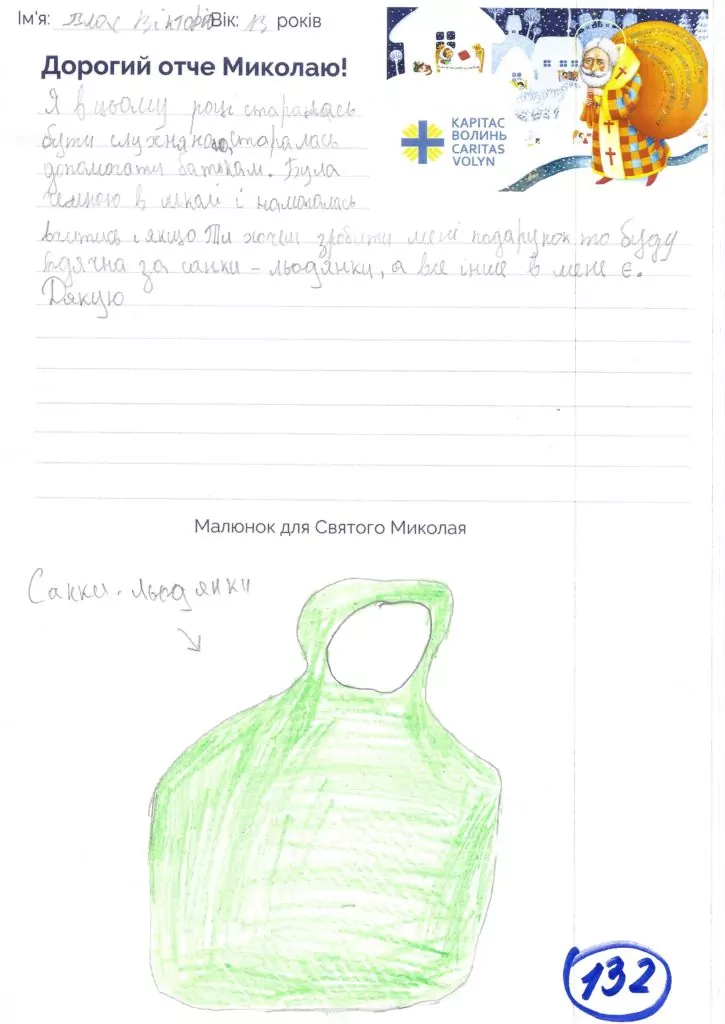 Ім'я: Влох Вікторія Вік: 13 років
Дорогий отче Миколаю!
КАРІТАС
ВОЛИНЬ
CARITAS
VOLYN
Я в цьому році старалась
бути слухняною, старалась
допомогати батькам. Була
чемною в школі і намагалась
вчитись і якщо Ти хочеш зробити мені подарунок то буду
вдячна за санки - льодянки, а все інше в мене є.
Дякую
Малюнок для Святого Миколая
Санки - льодянки
132